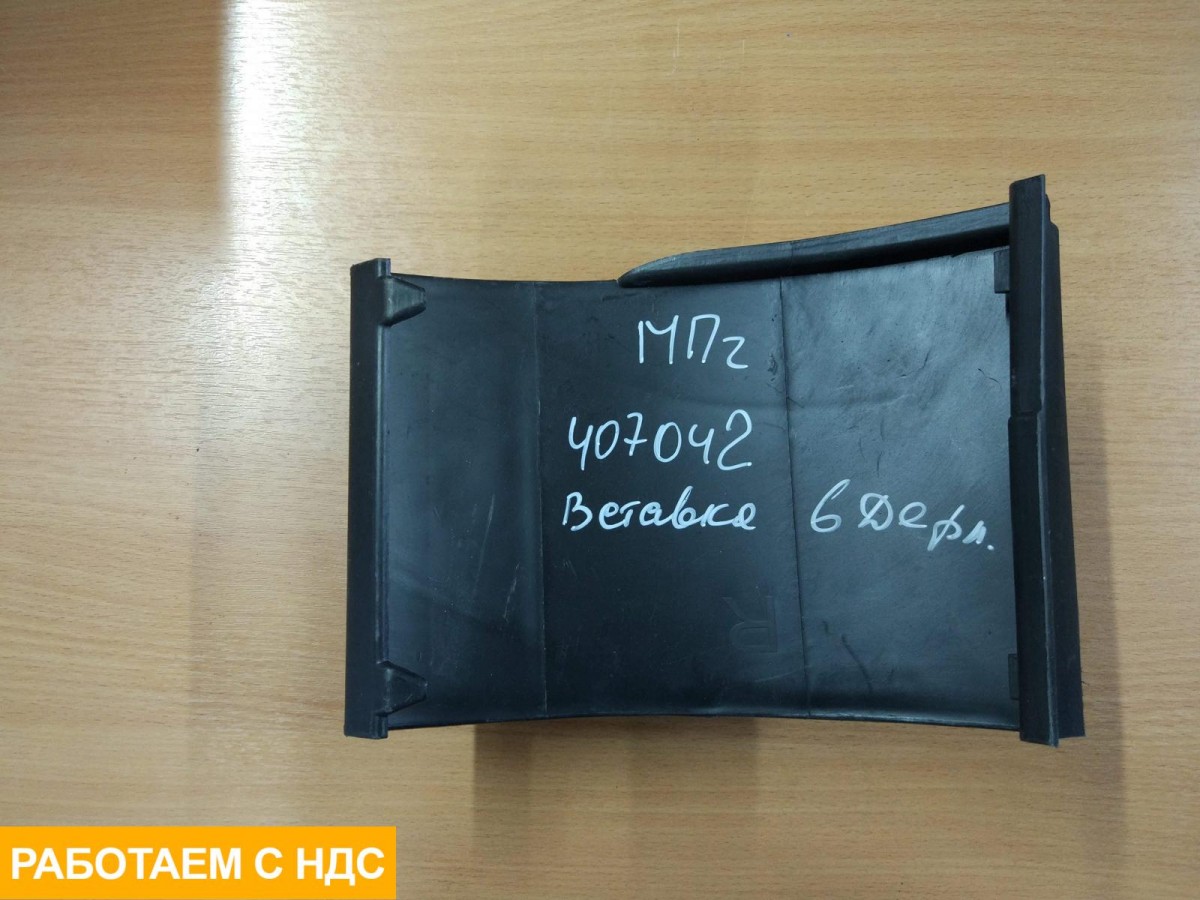 МПг
407042
Вставка в Дефл.
R
РАБОТАЕМ С НДС